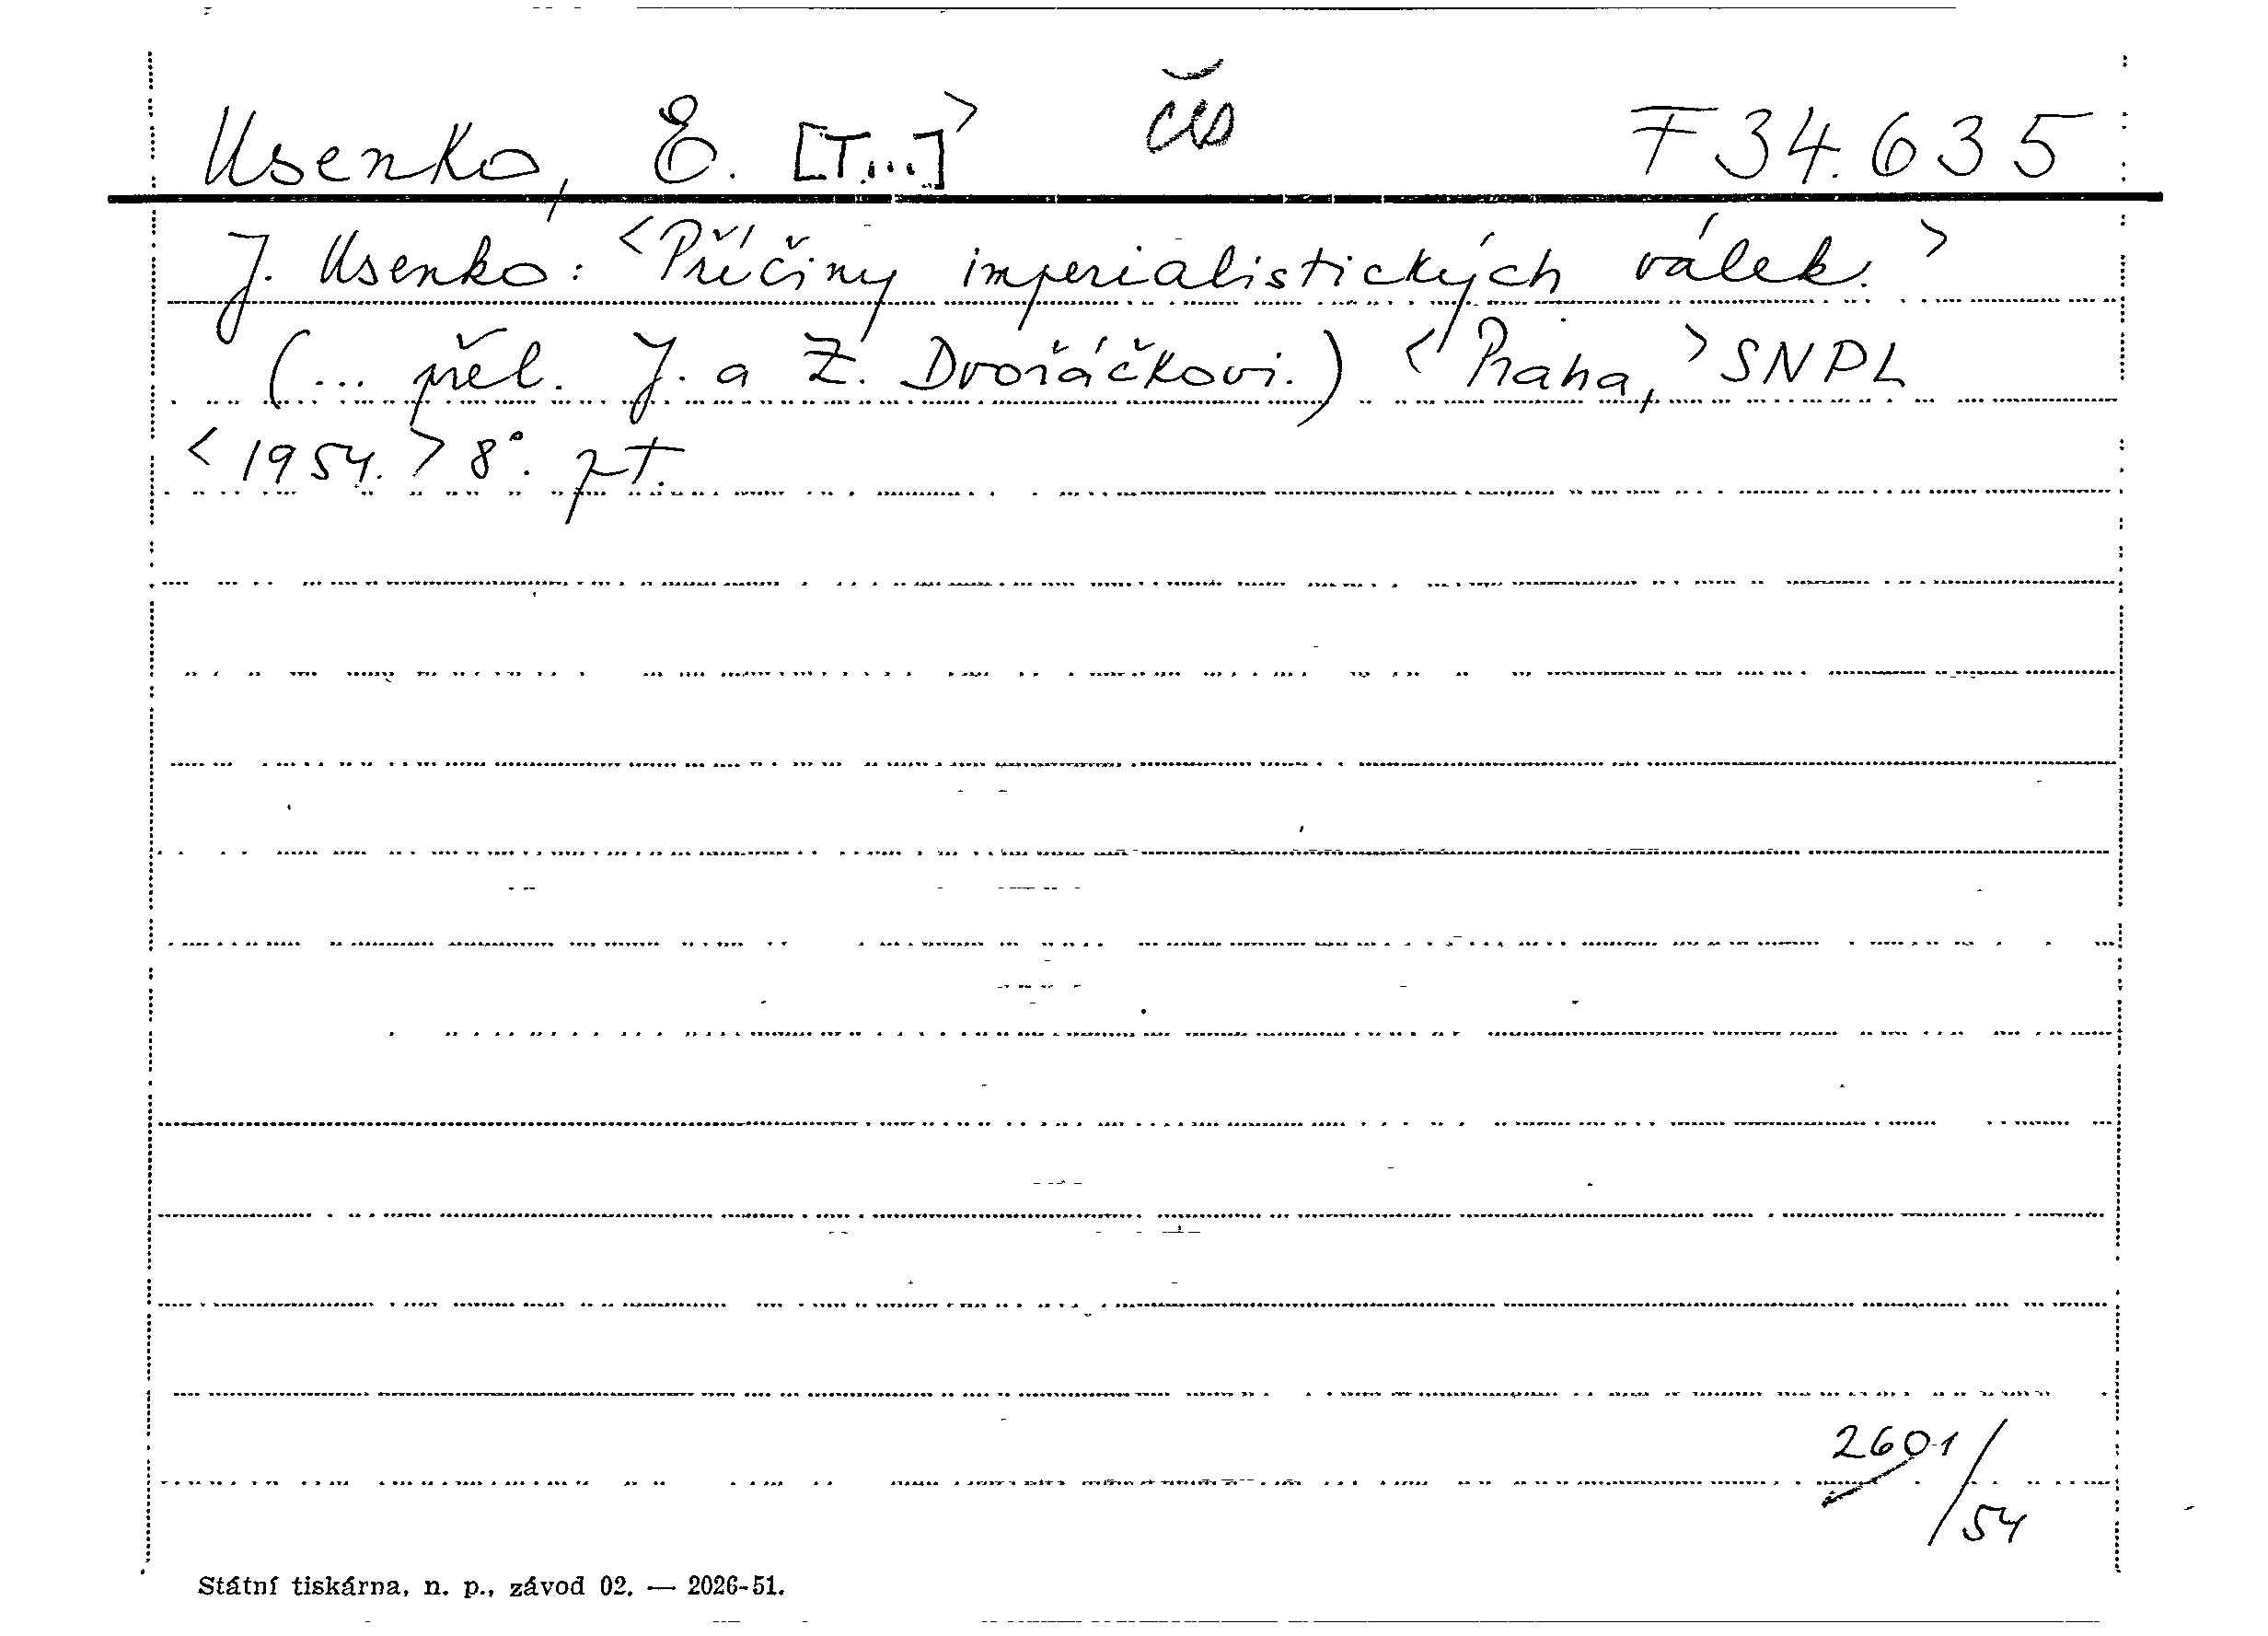 Usenko, E. [T...]> čes F 34.635
J. Usenko: <Příčiny imperialistických válek.>
(... přel. J. a Z. Dvořáčkovi.) <Praha,> SNPL
<1954.> 8°. pt.
2601/54
Státní tiskárna, n. p., závod 02. — 2026-51.